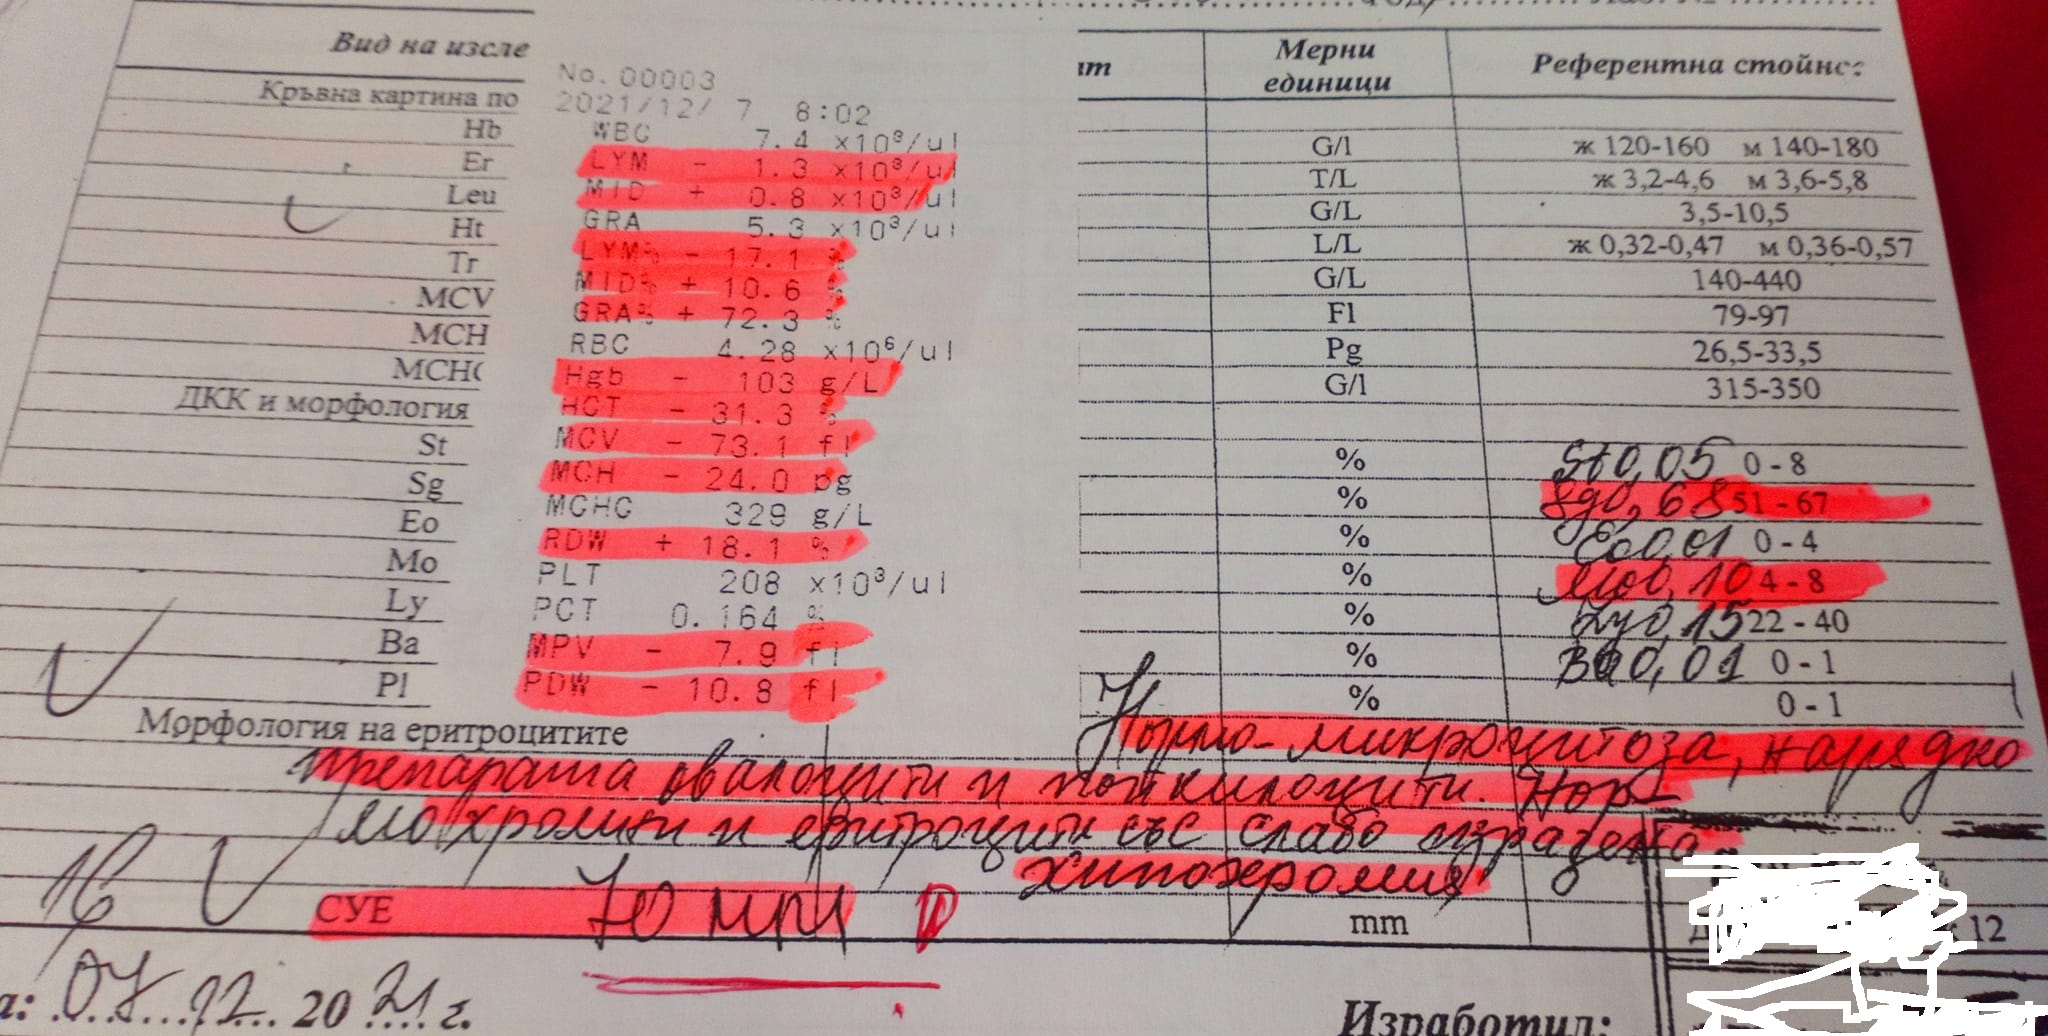 Вид на изсле
Мерни единици
Референтна стойнс
Кръвна картина по
No. 00003
2021/12/ 7 8:02
Hb WBC 7.4 x10³/ul G/l ж 120-160 м 140-180
Er LYM - 1.3 x10³/ul T/L ж 3,2-4,6 м 3,6-5,8
Leu MID + 0.8 x10³/ul G/L 3,5-10,5
Ht GRA 5.3 x10³/ul L/L ж 0,32-0,47 м 0,36-0,57
Tr LYM% - 17.1 % G/L 140-440
MCV MID% + 10.6 % Fl 79-97
MCH GRA% + 72.3 % Pg 26,5-33,5
MCHC RBC 4.28 x10⁶/ul G/l 315-350
Hgb - 103 g/L
ДКК и морфология HCT - 31.3 %
St MCV - 73.1 fl % St 0,05 0 - 8
Sg MCH - 24.0 pg % Sg 0,68 51 - 67
Eo MCHC 329 g/L % Eo 0,01 0 - 4
Mo RDW + 18.1 % % Mo 0,10 4 - 8
Ly PLT 208 x10³/ul % Ly 0,15 22 - 40
Ba PCT 0.164 % % Ba 0,01 0 - 1
Pl MPV - 7.9 fl % 0 - 1
PDW - 10.8 fl
Морфология на еритроцитите Нормо-микроцитоза, нарядко
препарата овалоцити и пойкилоцити. Нор-
мохромни и еритроцити със слабо изразена
хипохромия
СУЕ 70 мм mm
12
а: 07.12. 2021 г.
Изработил: